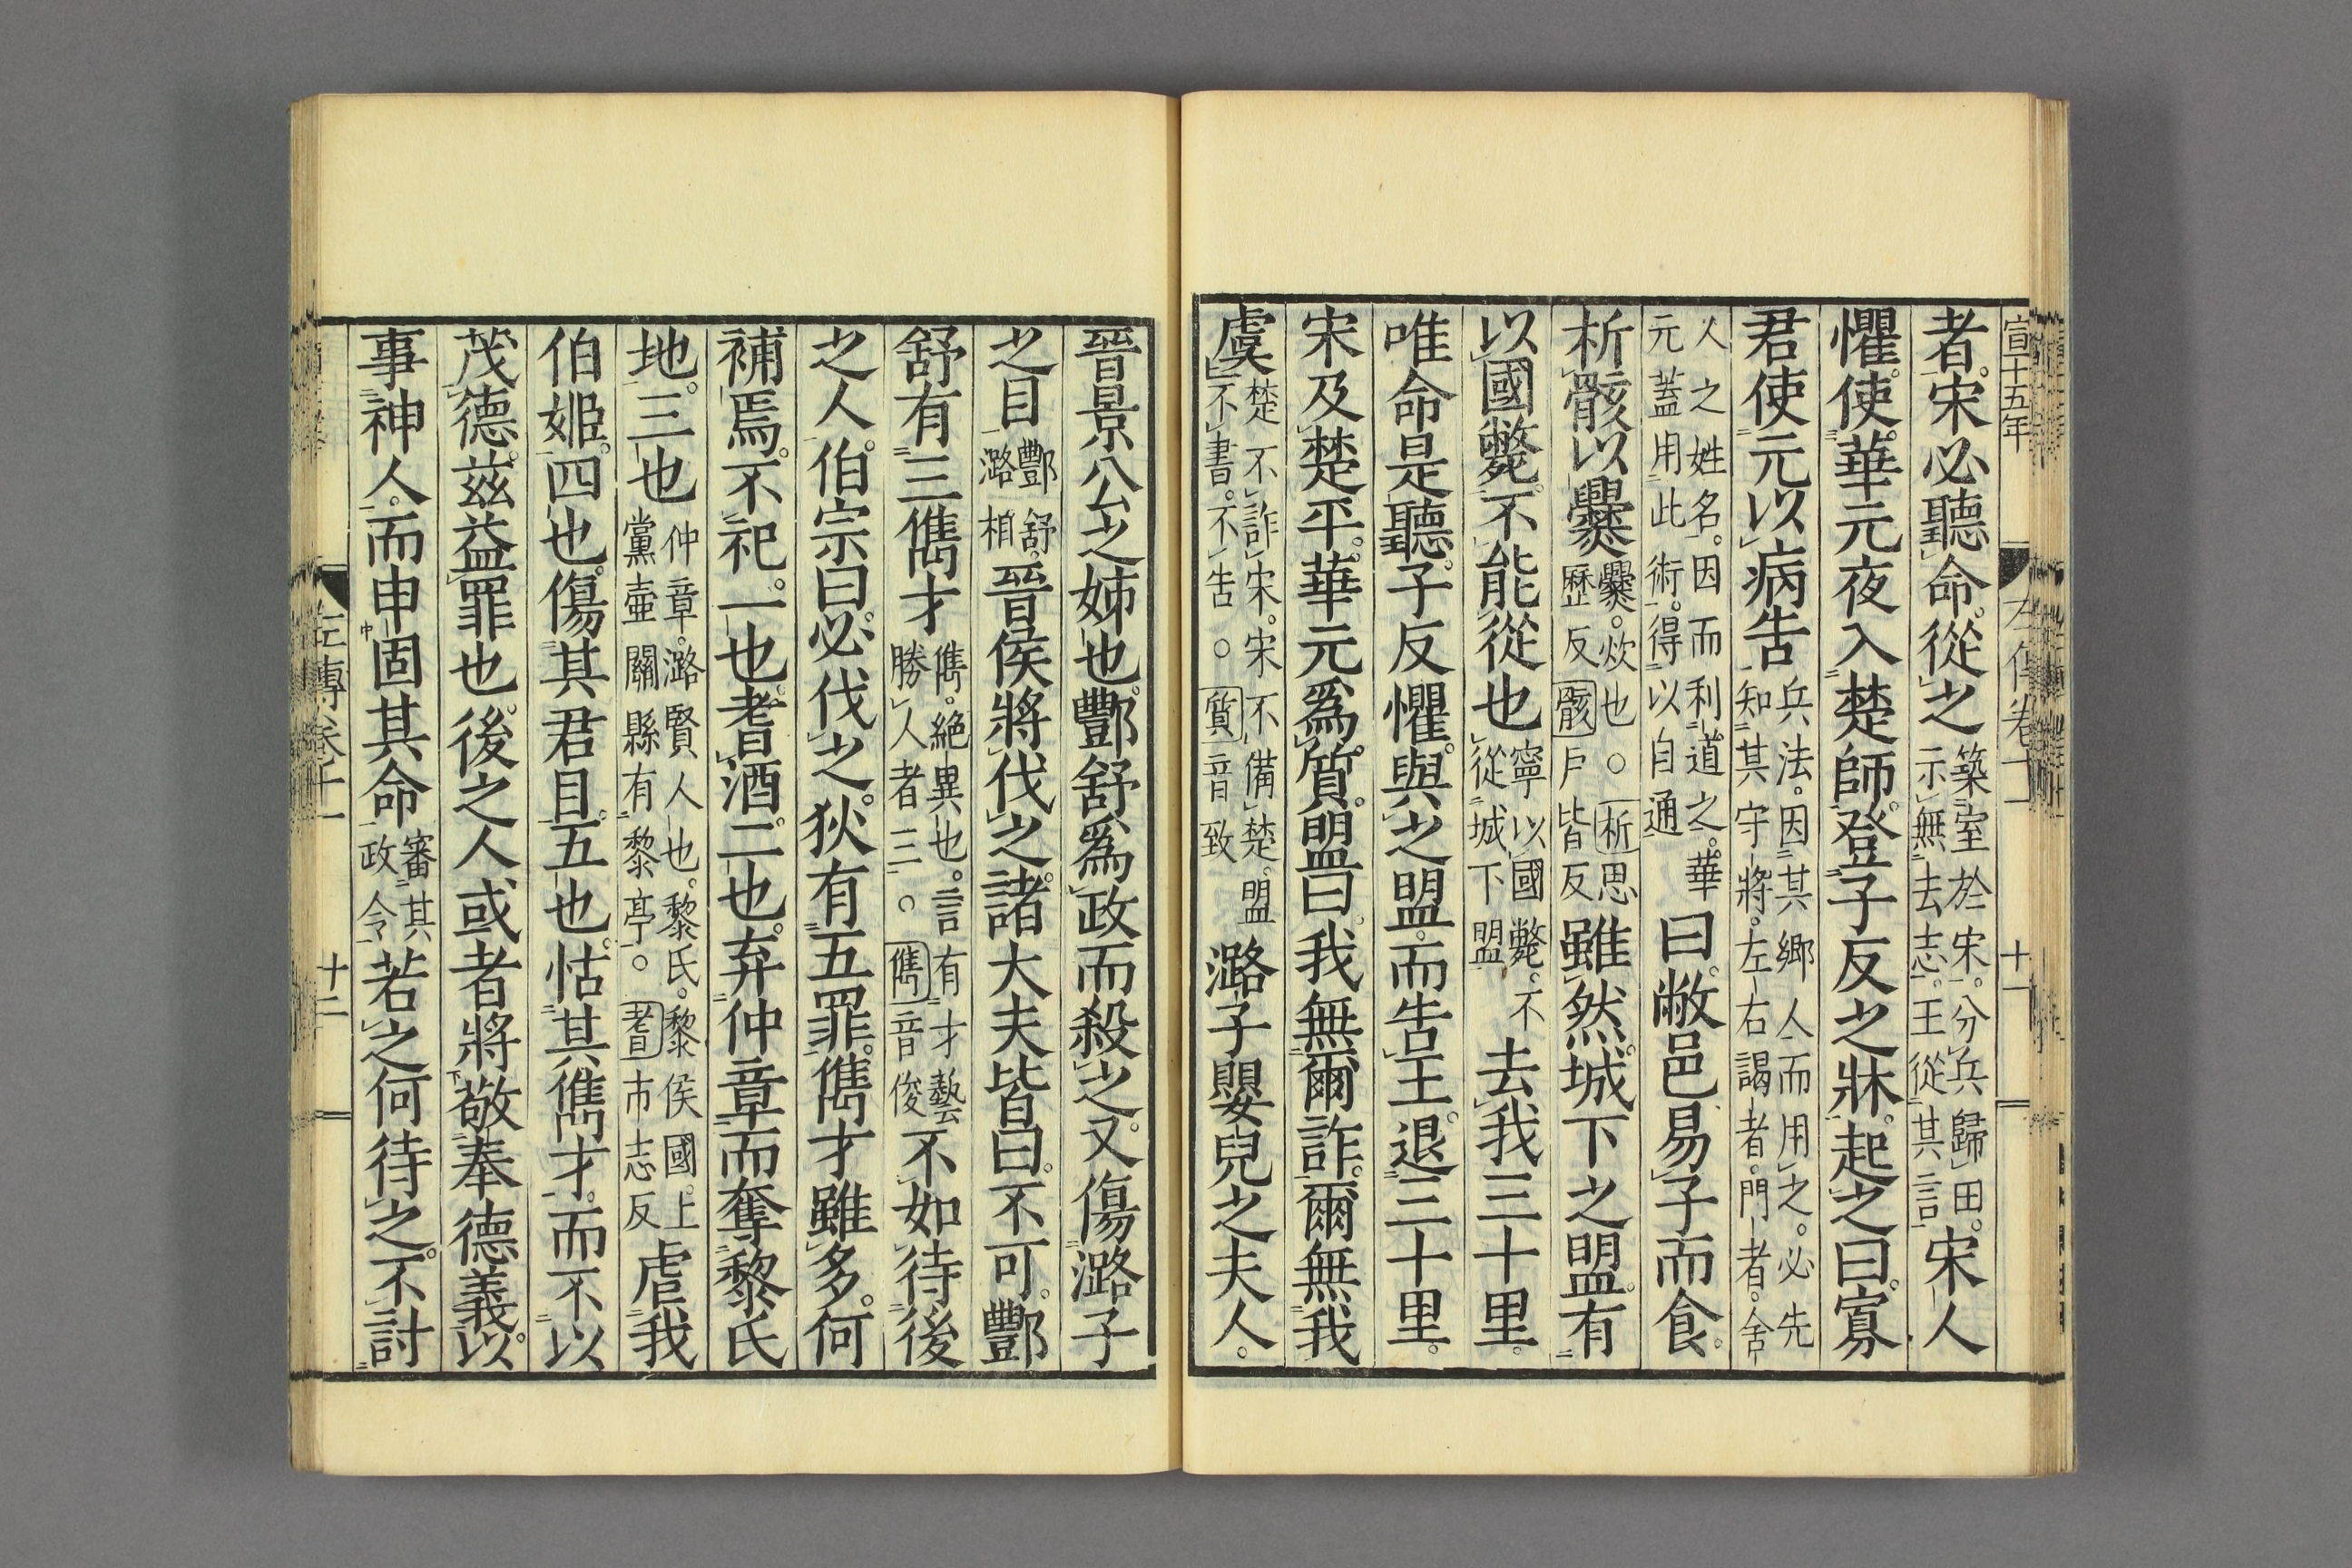 宣十五年
左傳卷十一
十一
者。宋必聽命。從之築室於宋。分兵歸田。示無去志。王從其言宋人
懼。使華元夜入楚師。登子反之牀。起之曰。寡
君使元以病告兵法。因其鄉人而用之。必先知其守將。左右謁者。門者。舍
人之姓名。因而利道之。華元蓋用此術。得以自通曰。敝邑易子而食。
析骸以爨爨。炊也○析思歷反骸戶皆反雖然。城下之盟。有
以國斃。不能從也寧以國斃。不從城下盟去我三十里。
唯命是聽。子反懼。與之盟。而告王。退三十里。
宋及楚平。華元爲質。盟曰。我無爾詐。爾無我
虞楚不詐宋。宋不備楚。盟不書。不告。○質音致潞子嬰兒之夫人。
晉景公之姊也。酆舒爲政而殺之。又傷潞子
之目酆舒。潞相晉侯將伐之。諸大夫皆曰。不可。酆
舒有三儁才儁。絕異也。言有才藝勝人者三。○儁音俊不如待後
之人。伯宗曰。必伐之。狄有五罪。儁才雖多。何
補焉。不祀。一也。耆酒。二也。弃仲章而奪黎氏
地。三也仲章。潞賢人也。黎氏。黎侯國。上黨壺關縣有黎亭。○耆市志反虐我
伯姬。四也。傷其君目。五也。怙其儁才。而不以
茂德。茲益罪也。後之人或者將敬奉德義。以
事神人。而申固其命審其政令若之何待之。不討
左傳卷十一
十二